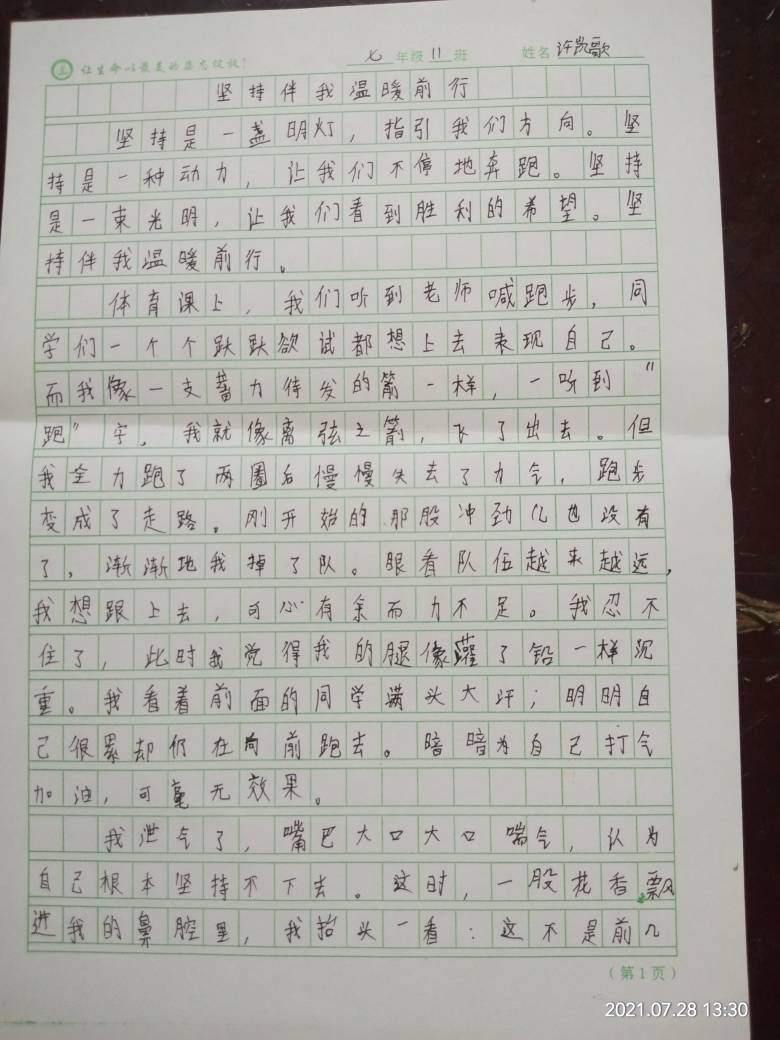 让生命以最美的姿态绽放！ 七 年级 11 班 姓名 许凯歌
坚持伴我温暖前行
坚持是一盏明灯，指引我们方向。坚
持是一种动力，让我们不停地奔跑。坚持
是一束光明，让我们看到胜利的希望。坚
持伴我温暖前行。
体育课上，我们听到老师喊跑步，同
学们一个个跃跃欲试都想上去表现自己。
而我像一支蓄力待发的箭一样，一听到"
跑"字，我就像离弦之箭，飞了出去。但
我全力跑了两圈后慢慢失去了力气，跑步
变成了走路。刚开始的那股冲劲儿也没有
了，渐渐地我掉了队。眼看队伍越来越远，
我想跟上去，可心有余而力不足。我忍不
住了，此时我觉得我的腿像灌了铅一样沉
重。我看着前面的同学满头大汗；明明自
己很累却仍在向前跑去。暗暗为自己打气
加油，可毫无效果。
我泄气了，嘴巴大口大口喘气，认为
自己根本坚持不下去。这时，一股花香飘
进我的鼻腔里，我抬头一看：这不是前几
（第1页）
2021.07.28 13:30